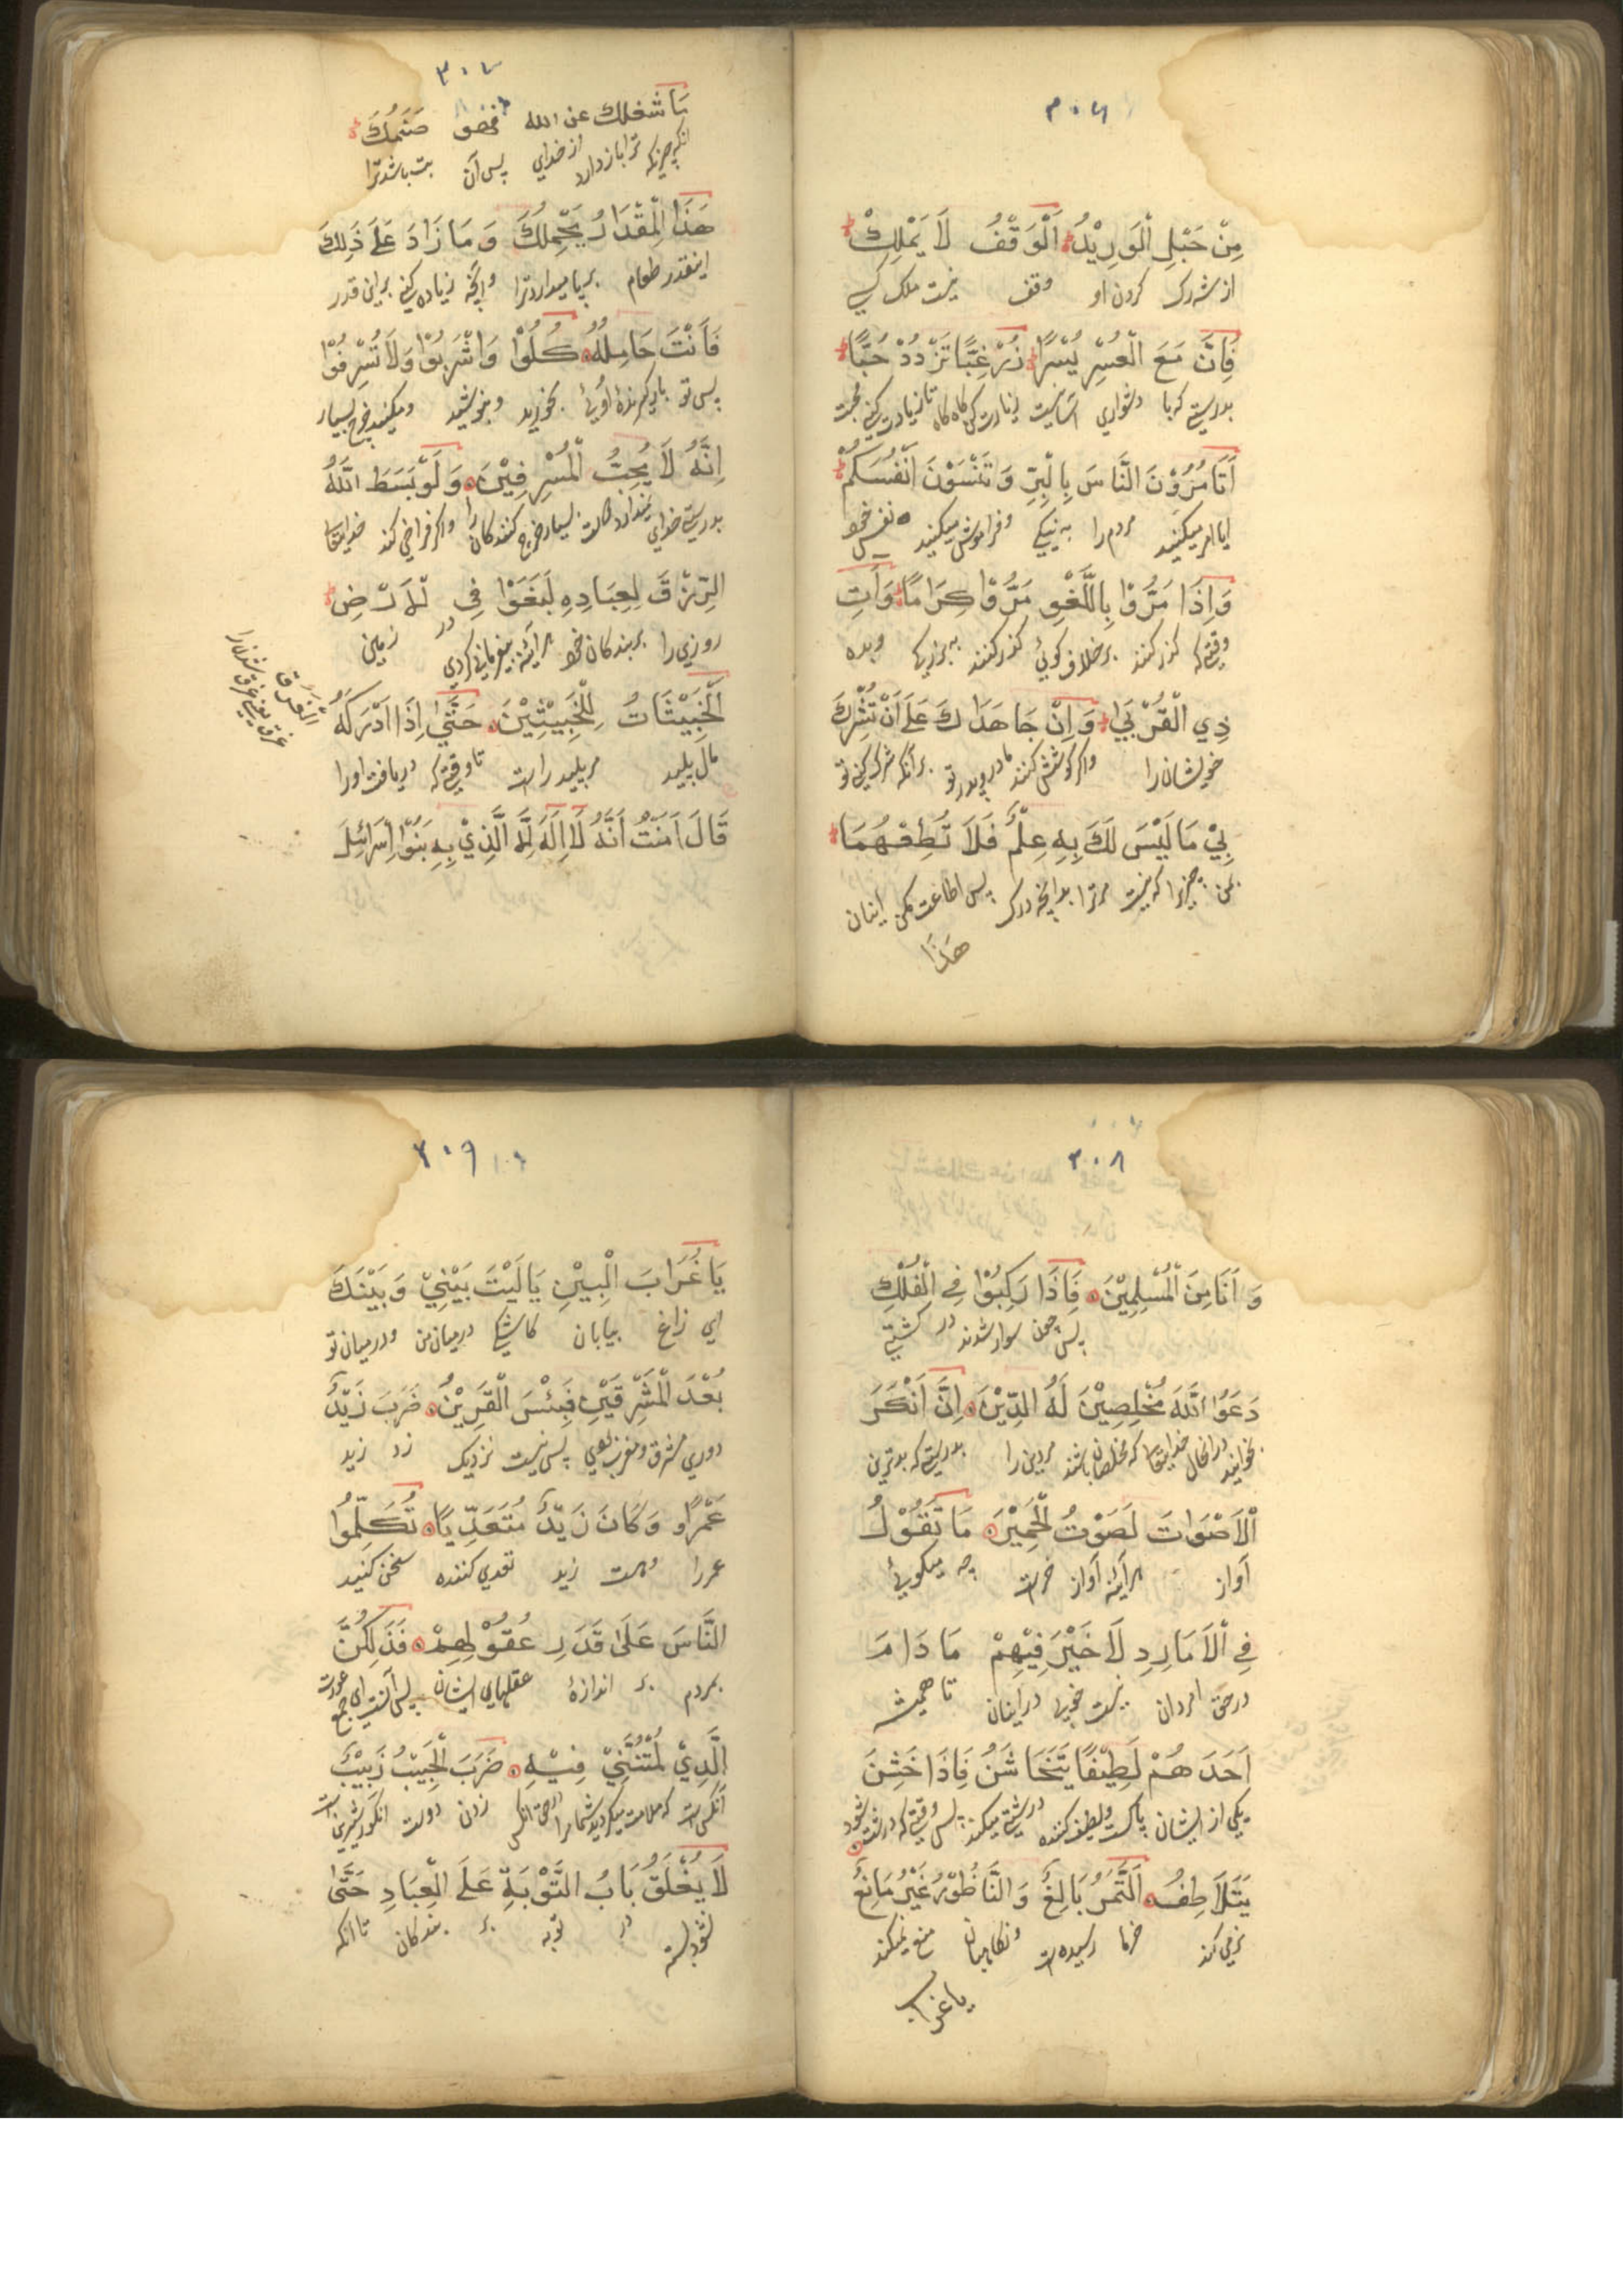 ۳۰۶
مِنْ حَبْلِ الْوَرِيْدُ اَلْوَقْفُ لَا يَمْلِكْ
از شه رک کردن او وقف نیست ملک کسی
فَاِنَّ مَعَ الْعُسْرِ يُسْرًا زُرْغِبًّا تَزْدَدْ حُبًّا
بدرستی که با دشواری آسانیست زیارت کن کاه کاه تا زیادت کنی محبت
اَتَأمُرُوْنَ النَّاسَ بِالْبِرِّ وَتَنْسَوْنَ اَنْفُسَكُمْ
ایا امر میکنید مردم را به نیکی و فراموش میکنید نفس خود
وَاِذَا مَرُّوْا بِاللَّغْوِ مَرُّوْا كِرَامًا وَاٰتِ
وقتیکه کذر کنند بر خلاف کوئی کذر کنند به بزرکی و بده
ذِي الْقُرْبَىٰ وَاِنْ جَاهَدَاكَ عَلَىٰ اَنْ تُشْرِكَ
خویشان را و اکر کوشش کنند مادر و پدر تو بر آنکه شرک کنی تو
بِيْ مَا لَيْسَ لَكَ بِهِ عِلْمٌ فَلَا تُطِعْهُمَا
بمن چیزیرا که نیست مر ترا بدانچه درک پس اطاعت مکن اینان
هٰذَا
۳۰۷
مَا شغلك عن الله فهو صَنَمُكَ
انکه چیزیکه ترا باز دارد از خدای پس آن بت باشد ترا
هَذَا الْمِقْدَارُ يَحْمِلُكَ وَمَا زَادَ عَلَىٰ ذٰلِكَ
اینقدر طعام بر پا میدارد ترا و آنچه زیاده کنی بر این قدر
فَاَنْتَ حَامِلُهُ كُلُوْا وَاشْرَبُوْا وَلَا تُسْرِفُوْا
پس تو بار کیرنده اوئی بخورید و بنوشید و مکنید خرج بسیار
اِنَّهُ لَا يُحِبُّ الْمُسْرِفِيْنَ وَلَوْ بَسَطَ اللّٰهُ
بدرستی خدای دوست ندارد بسیار خرج کنندکان را و اکر فراخی کند خدایتعا
الرِّزْقَ لِعِبَادِهِ لَبَغَوْا فِي الْاَرْضِ
روزی را بر بندکان خود هر آئینه بیفرمانی کردی در زمین
اَلْخَبِيْثَاتُ لِلْخَبِيْثِيْنَ حَتّٰى اِذَا اَدْرَكَهُ
مال پلید مر پلید راست تا وقتیکه دریافت او را
قَالَ اٰمَنْتُ اَنَّهُ لَا اِلٰهَ اِلَّا الَّذِيْ بِهِ بَنُوْا اِسْرَائِيْلَ
الغرق
غرق یعنی غرق شدن را
۳۰۸
وَ اَنَا مِنَ الْمُسْلِمِيْنَ فَاِذَا رَكِبُوْا فِي الْفُلْكِ
پس چون سوار شوند در کشتی
دَعَوُا اللّٰهَ مُخْلِصِيْنَ لَهُ الدِّيْنَ اِنَّ اَنْكَرَ
بخوانید در انحال خدایتعا که مخلصان باشند مر دین را بدرستیکه بدترین
الْاَصْوَاتَ لَصَوْتُ الْحَمِيْرَ مَا تَقُوْلُ
آواز هر آئینه آواز خرست چه میکوئی
فِي الْاَمَارِدِ لَا خَيْرَ فِيْهِمْ مَادَامَ
در حق امردان نیست خوبی در اینان تا همیشه
اَحَدَهُمْ لَطِيْفًا يَتَخَاشَنُ فَاِذَا خَشِنَ
یکی از ایشان پاکست و لطیف کننده درشتی میکند پس وقتیکه درشت شود
يَتَلَاطَفُ اَلتَّمَرُ بَالِغٌ وَ النَّاظُوْرُ غَيْرُ مَانِعٌ
نرمی کند خرما رسیده است و نکاهبان منع نمیکند
یاغراب
۳۰۹
يَا غُرَابَ الْبَيْنِ يَا لَيْتَ بَيْنِيْ وَبَيْنَكَ
ای زاغ بیابان کاشکی در میان من و در میان تو
بُعْدَ الْمَشْرِقَيْنِ فَبِئْسَ الْقَرِيْنُ ضَرَبَ زَيْدٌ
دوری مشرق و مغرب بودی پس نیست نزدیک زد زید
عَمْرًاو وَكَانَ زَيْدٌ مُتَعَدِّيًا تُكَلِّمُوا
عمر را و هست زید تعدی کننده سخن کنید
النَّاسَ عَلَىٰ قَدَرِ عُقُوْلِهِمْ فَذٰلِكُنَّ
بمردم بر اندازهٔ عقلهای ایشان پس آنست ای جمع عورت
الَّذِيْ لُمْتُنَّنِيْ فِيْهِ ضَرْبُ الْحَبِيْبِ زَبِيْبٌ
آنکس است که ملامت میکردید شما مرا در حق انکس زدن دوست انکور شیرین است
لَا يُغْلَقُ بَابُ التَّوْبَةِ عَلَى الْعِبَادِ حَتّٰى
نشود بسته در توبه بر بندکان تا آنکه